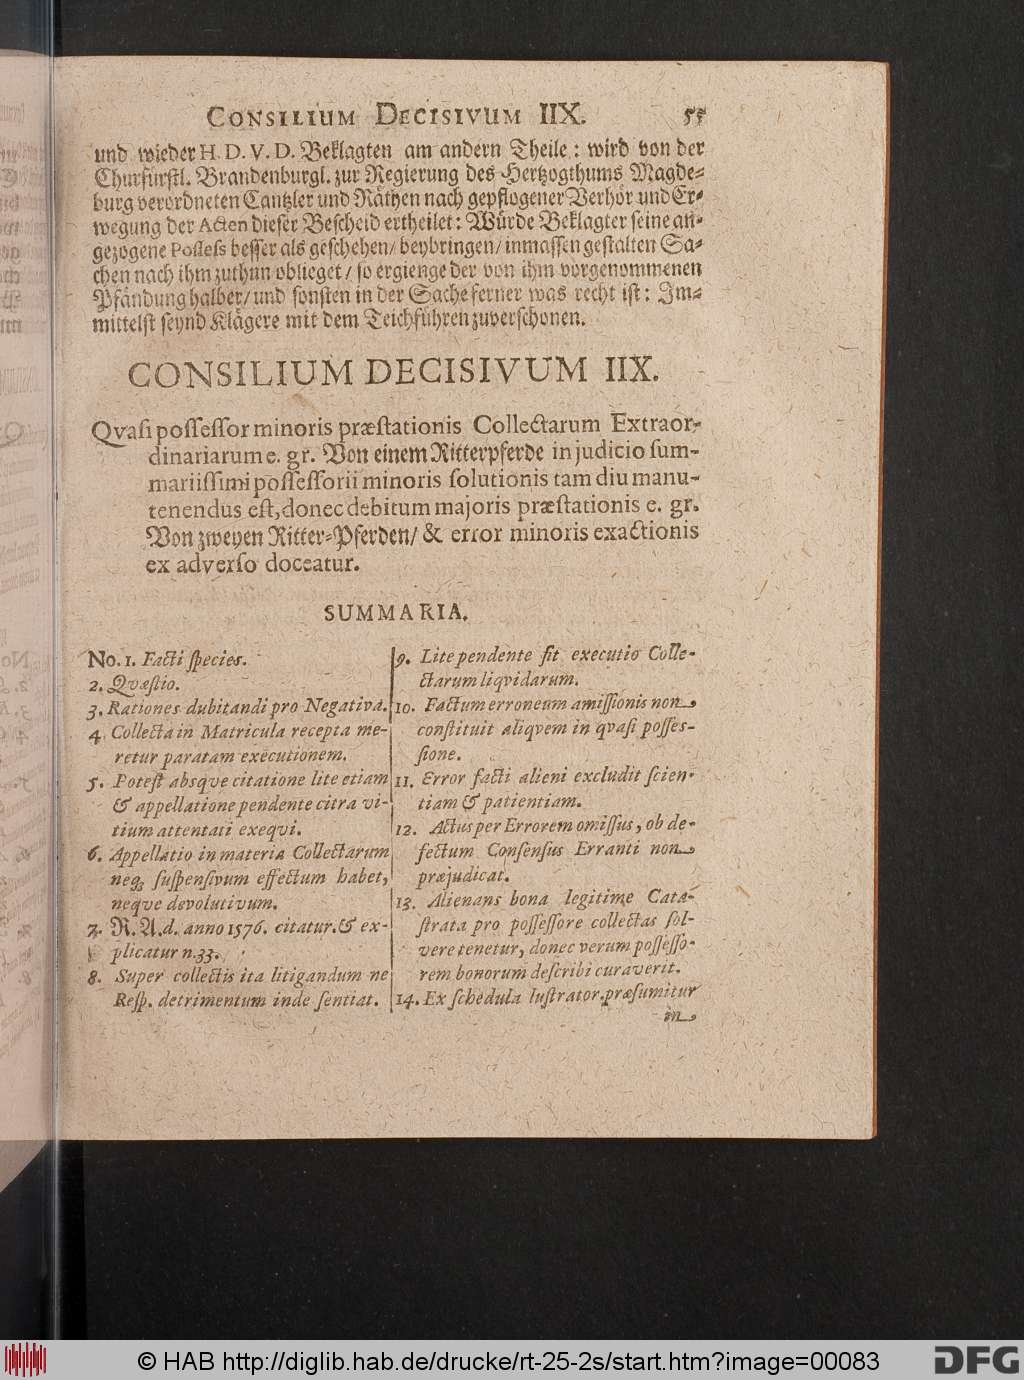 CONSILIUM DECISIVUM IIX. 55
und wieder H. D. V. D. Beklagten am andern Theile: wird von der
Churfürstl. Brandenburgl. zur Regierung des Hertzogthums Magde-
burg verordneten Cantzler und Räthen nach gepflogener Verhör und Er-
wegung der Acten dieser Bescheid ertheilet: Würde Beklagter seine an-
gezogene Possess besser als geschehen/ beybringen/ inmassen gestalten Sa-
chen nach ihm zuthun oblieget/ so ergienge der von ihm vorgenommenen
Pfändung halber/ und sonsten in der Sache ferner was recht ist: Im-
mittelst seynd Klägere mit dem Teichführen zuverschonen.
CONSILIUM DECISIVUM IIX.
Qvasi possessor minoris præstationis Collectarum Extraor-
dinariarum e. gr. Von einem Ritterpferde in judicio sum-
mariissimi possessorii minoris solutionis tam diu manu-
tenendus est, donec debitum majoris præstationis e. gr.
Von zweyen Ritter-Pferden/ & error minoris exactionis
ex adverso doceatur.
SUMMARIA.
No. 1. Facti species.
2. Qvæstio.
3. Rationes dubitandi pro Negativa.
4. Collecta in Matricula recepta me-
retur paratam executionem.
5. Potest absqve citatione lite etiam
& appellatione pendente citra vi-
tium attentati exeqvi.
6. Appellatio in materia Collectarum
neq; suspensivum effectum habet,
neque devolutivum.
7. R. A. d. anno 1576. citatur. & ex-
plicatur n. 33.
8. Super collectis ita litigandum ne
Resp. detrimentum inde sentiat.
9. Lite pendente fit executio Colle-
ctarum liqvidarum.
10. Factum erroneum amissionis non
constituit aliqvem in qvasi posses-
sione.
11. Error facti alieni excludit scien-
tiam & patientiam.
12. Actus per Errorem omissus, ob de-
fectum Consensus Erranti non
præjudicat.
13. Alienans bona legitime Cata-
strata pro possessore collectas sol-
vere tenetur, donec verum possesso-
rem bonorum describi curaverit.
14. Ex schedula lustrator. præsumitur
in
© HAB http://diglib.hab.de/drucke/rt-25-2s/start.htm?image=00083
DFG